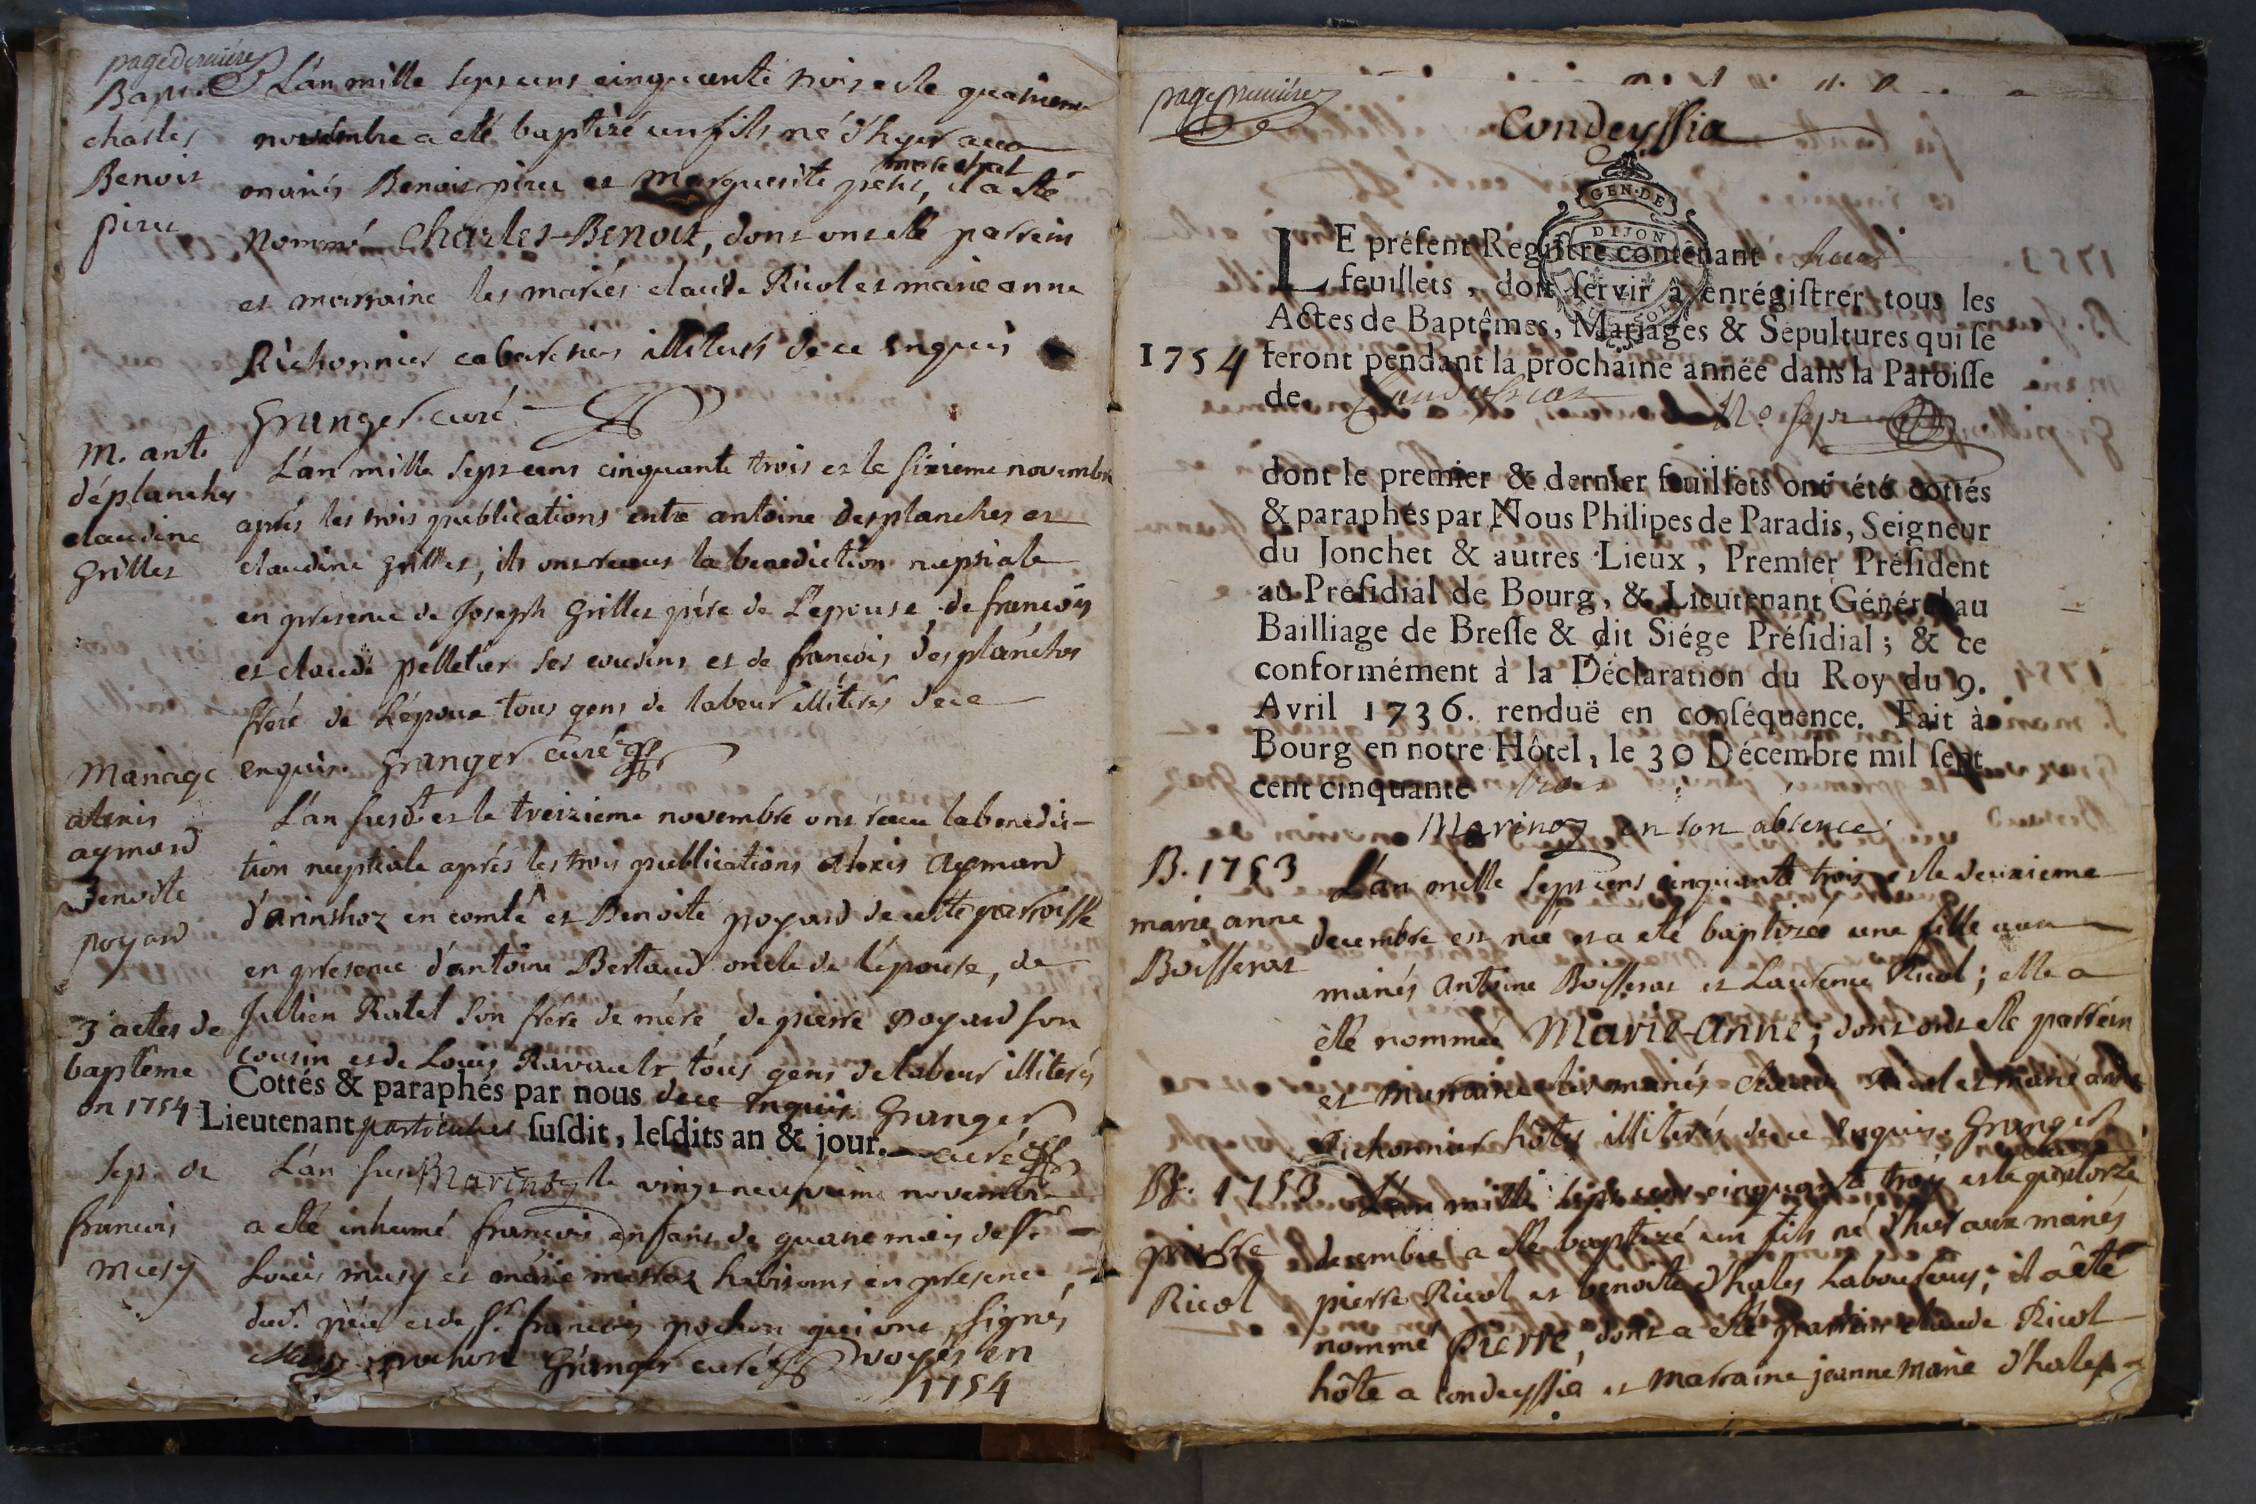 page derniére
Bapt. L'an mille sept cens cinquante trois et le quatrieme
charles novembre a eté baptizé un fils né d'hyer aux
Benoit mariés Benoit piru et Marguerite petit, il a eté
piru nommé Charles-Benoit, dont ont eté parrein
et marraine les mariés claude Ricol et marie anne
Richonnier cabaretiers illiterés de ce enquis
Granger curé
M. ant. L'an mille sept cens cinquante trois et le sixieme novembre
déplanches aprés les trois publications entre antoine desplanches et
claudine claudine grillet, ils ont receus la benediction nuptiale
Grillet en presence de Joseph Grillet pére de L'epouse, de francois
et claude pelletier ses cousins et de francois desplánches
frére de L'époux tous gens de labeur illiterés de ce
enquis. Granger curé
Mariage L'an susd. et le treizieme novembre ont receu la benedic-
alexis tion nuptiale aprés les trois publications Alexis Aymard
aymard d'arinthoz en comté et Benoite poyard de cette parroisse
Benoite en presence d'antoine Bertaud oncle de l'épouse, de
poyard Julien Ratel son frére de mére, de pierre poyard son
3 actes de cousin et de Louis Ravault tous gens de labeur illiterés
baptême Cottés & paraphés par nous de ce enquis. Granger
en 1754 Lieutenant particulier susdit, lesdits an & jour. curé
Sep. de L'an susd. Marinoz le vingt neuvieme novembre
francois a eté inhumé francois enfant de quatre mois de Sr.
musy Louis musy et marie habitans en presence
dud. pére et de Sr. francois pochon qui ont signés
Musy pochon Granger curé voyés en
1754
page premiére
Condeyssia
GEN. DE
DIJON
LE présent Registre contenant
feuillets, doit servir à enrégistrer tous les
Actes de Baptêmes, Mariages & Sépultures qui se
1754 feront pendant la prochaine année dans la Paroisse
de Condeyssiat
No. sept
dont le premier & dernier feuillets ont été cottés
& paraphés par Nous Philipes de Paradis, Seigneur
du Jonchet & autres Lieux, Premier Président
au Présidial de Bourg, & Lieutenant Général au
Bailliage de Bresse & dit Siége Présidial; & ce
conformément à la Déclaration du Roy du 9.
Avril 1736. renduë en conséquence. Fait à
Bourg en notre Hôtel, le 30 Décembre mil sept
cent cinquante trois
Marinoz en son absence
B. 1753 L'an mille sept cens cinquante trois et le deuxieme
marie anne decembre est née et a eté baptizée une fille aux
Boisserat mariés Antoine Boisserat et Laurence Ricol; elle a
eté nommée Marie-Anne; dont ont eté parrein
et marraine les mariés claude Ricol et marie anne
Richonnier hôtes illiterés de ce enquis. Granger
B. 1753 L'an mille sept cens cinquante trois et le quatorze
pierre decembre a eté baptizé un fils né d'hier aux mariés
Ricol pierre Ricol et benoite d'hales Laboureurs; il a eté
nommé Pierre, dont a eté parrein claude Ricol
hôte a Condeyssia et marraine jeanne marie d'hales